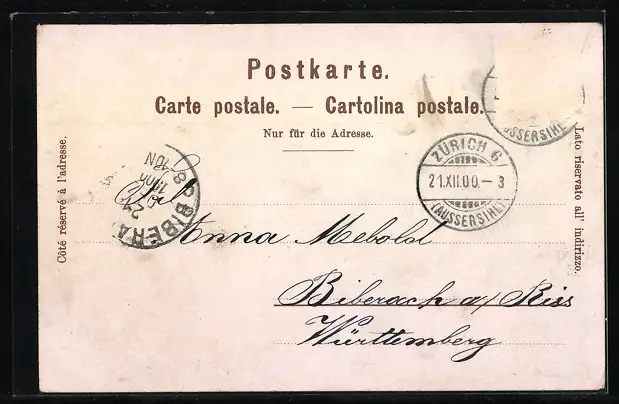 Postkarte.
Carte postale. — Cartolina postale.
Nur für die Adresse.
Côté réservé à l'adresse.
Lato riservato all' indirizzo.
AUSSERSIHL
ZÜRICH 6
21.XII.00.– 3
(AUSSERSIHL)
BIBERA
Anna Mebold
Biberach a/ Riss
Württemberg